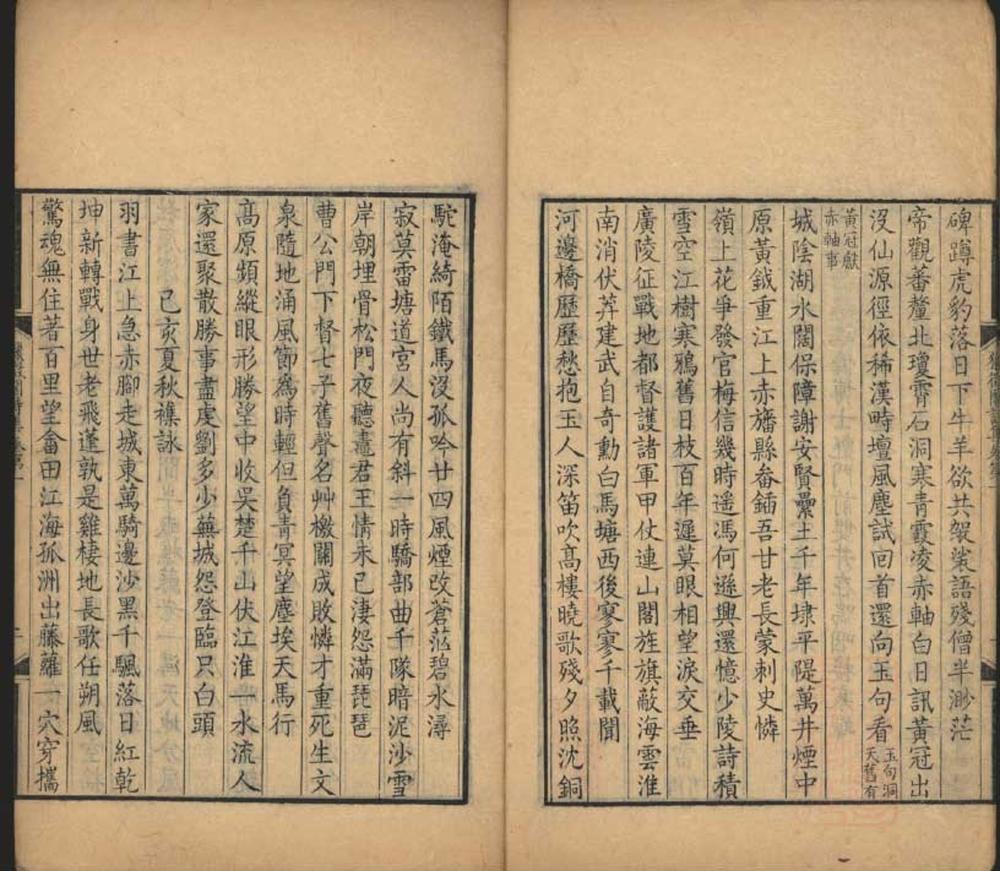 碑蹲虎豹落日下牛羊欲共袈裟語殘僧半渺茫
帝觀蕃釐北瓊霄石洞寒青霞凌赤軸白日訊黃冠出
沒仙源徑依稀漢時壇風塵試回首還向玉句看玉句洞
天舊有
黃冠獻
赤軸事
城陰湖水闊保障謝安賢纍土千年埭平隄萬井煙中
原黃鉞重江上赤旛縣畚鍤吾甘老長蒙刺史憐
嶺上花爭發官梅信幾時遙馮何遜興還憶少陵詩積
雪空江樹寒鴉舊日枝百年遲莫眼相望淚交垂
廣陵征戰地都督護諸軍甲仗連山閣旌旗蔽海雲淮
南消伏莽建武自奇勳白馬塘西後寥寥千載聞
河邊橋歷歷愁抱玉人深笛吹高樓曉歌殘夕照沈銅
駝淹綺陌鐵馬沒孤吟廿四風煙改蒼茫碧水潯
寂莫雷塘道宮人尚有斜一時驕部曲千隊暗泥沙雪
岸朝埋骨松門夜聽鼃君王情未已淒怨滿琵琶
曹公門下督七子舊聲名艸檄關成敗憐才重死生文
泉隨地涌風節為時輕但負青冥望塵埃天馬行
高原頻縱眼形勝望中收吳楚千山伏江淮一水流人
家還聚散勝事盡虔劉多少蕪城怨登臨只白頭
己亥夏秋襍詠
羽書江上急赤腳走城東萬騎邊沙黑千颿落日紅乾
坤新轉戰身世老飛蓬孰是雞棲地長歌任朔風
驚魂無住著百里望畬田江海孤洲出藤蘿一穴穿攜